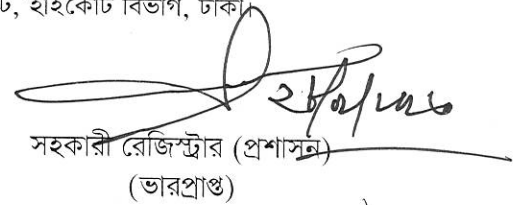 হাইকোর্ট বিভাগ, ঢাকা।
সহকারী রেজিস্ট্রার (প্রশাসন)
(ভারপ্রাপ্ত)